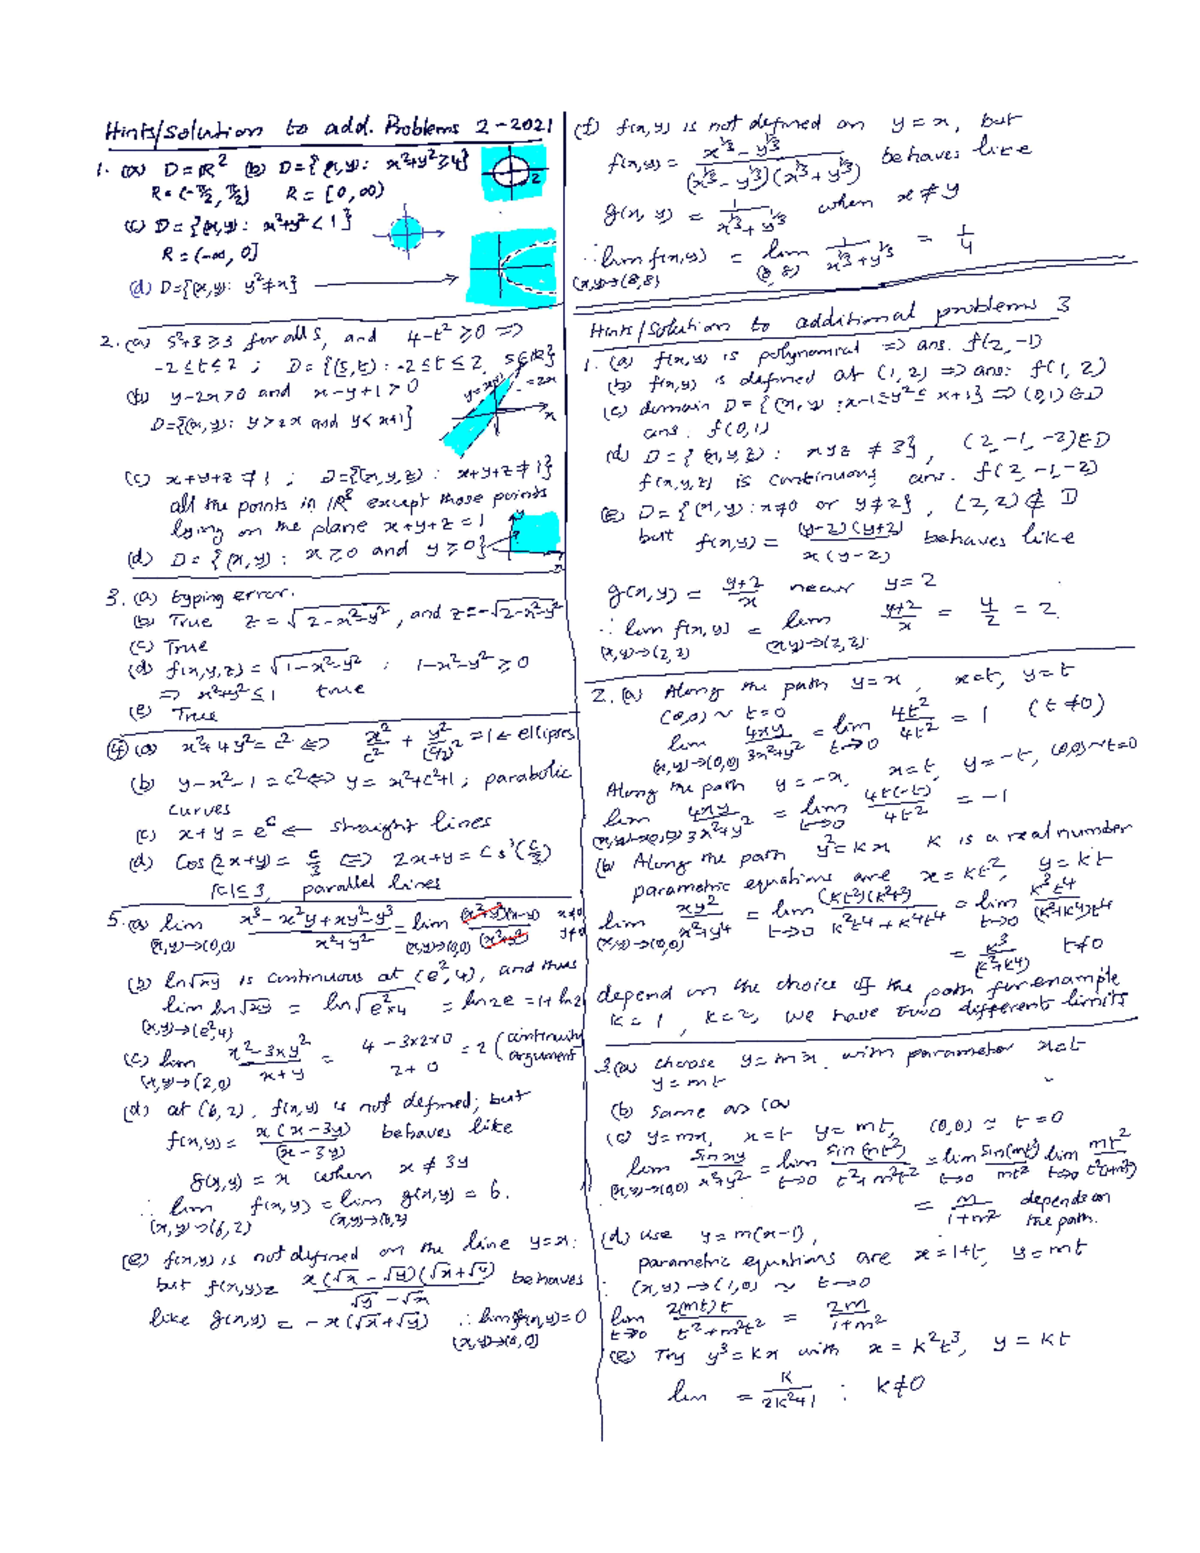 Hints/Solution to add. Problems 2-2021
1. (a) D = ℝ² (b) D = {(x,y): x²+y²≥4}
R = (-π/2, π/2] R = [0, ∞)
2
(c) D = {(x,y): x²+y² < 1}
R = (-∞, 0]
(d) D={(x,y): y²≠x}
2. (a) s²+3 ≥ 3 for all s, and 4-t² ≥ 0 ⇒
-2 ≤ t ≤ 2 ; D = {(s,t): -2 ≤ t ≤ 2, s∈ℝ}
(b) y-2x > 0 and x-y+1 > 0
D={(x,y): y > 2x and y < x+1}
y=x+1
=2x
x
(c) x+y+z ≠ 1 ; D={(x,y,z): x+y+z ≠ 1}
all the points in ℝ³ except those points
lying on the plane x+y+z = 1
(d) D = {(x,y): x ≥ 0 and y ≥ 0}
y
x
3. (a) typing error.
(b) True z = √(2-x²-y²), and z=-√(2-x²-y²)
(c) True
(d) f(x,y,z) = √(1-x²-y²) ; 1-x²-y² ≥ 0
⇒ x²+y² ≤ 1 true
(e) True
4 (a) x²+4y² = c² ⇔ x²/c² + y²/(c/2)² = 1 ← ellipses
(b) y-x²-1 = c² ⇔ y = x²+c²+1 ; parabolic
curves
(c) x+y = e^c ← straight lines
(d) Cos(2x+y) = c/3 ⇔ 2x+y = Cs⁻¹(c/3)
|c| ≤ 3, parallel lines
5. (a) lim (x,y)→(0,0) (x³-x²y+xy²-y³)/(x²+y²) = lim (x,y)→(0,0) (x²+y²)(x-y)/(x²+y²) x≠0 y≠0
(b) ln√xy is continuous at (e²,4), and thus
lim (x,y)→(e²,4) ln√xy = ln√(e²×4) = ln2e = 1+ln2
(c) lim (x,y)→(2,0) (x²-3xy²)/(x+y) = (4-3×2×0)/(2+0) = 2 (continuity argument
(d) at (6,2), f(x,y) is not defined; but
f(x,y) = x(x-3y)/(x-3y) behaves like
g(x,y) = x when x ≠ 3y
∴ lim (x,y)→(6,2) f(x,y) = lim (x,y)→(6,2) g(x,y) = 6.
(e) f(x,y) is not defined on the line y=x:
but f(x,y)= x(√x-√y)(√x+√y)/(√y-√x) behaves
like g(x,y) = -x(√x+√y) ∴ lim (x,y)→(0,0) f(x,y)=0
(f) f(x,y) is not defined on y = x, but
f(x,y) = (x^⅓-y^⅓)/((x^⅓-y^⅓)(x^⅓+y^⅓)) behaves like
g(x,y) = 1/(x^⅓+y^⅓) when x ≠ y
∴ lim (x,y)→(8,8) f(x,y) = lim (8,8) 1/(x^⅓+y^⅓) = 1/4
Hints/Solution to additional problems 3
1. (a) f(x,y) is polynomial ⇒ ans. f(2,-1)
(b) f(x,y) is defined at (1,2) ⇒ ans: f(1,2)
(c) domain D={(x,y): x-1≤y²≤x+1} ⇒ (0,1)∈D
ans. f(0,1)
(d) D = {(x,y,z): xyz ≠ 3}, (2,-1,-2)∈D
f(x,y,z) is continuous ans. f(2,-1,-2)
(e) D={(x,y): x≠0 or y≠2}, (2,2)∉D
but f(x,y) = (y-2)(y+2)/(x(y-2)) behaves like
g(x,y) = (y+2)/x near y=2
∴ lim (x,y)→(2,2) f(x,y) = lim (x,y)→(2,2) (y+2)/x = 4/2 = 2.
2. (a) Along the path y=x, x=t, y=t
(0,0) ~ t=0
lim (x,y)→(0,0) 4xy/(3x²+y²) = lim t→0 4t²/4t² = 1 (t≠0)
Along the path y=-x, x=t, y=-t, (0,0)~t=0
lim (x,y)→(0,0) 4xy/(3x²+y²) = lim t→0 4t(-t)/4t² = -1
(b) Along the path y²=kx k is a real number
parametric equations are x = kt², y=kt
lim (x,y)→(0,0) xy²/(x²+y⁴) = lim t→0 (kt²)(k²t²)/(k²t⁴+k⁴t⁴) = lim t→0 k³t⁴/(k²+k⁴)t⁴
= k³/(k²+k⁴) t≠0
depend on the choice of the path for example
k=1, k=2, we have two different limits
3.(a) choose y=mx. with parameter x=t
y=mt
(b) same as (a
(c) y=mx, x=t y=mt, (0,0) ≈ t=0
lim (x,y)→(0,0) sin xy/(x²+y²) = lim t→0 sin(mt²)/(t²+m²t²) = lim t→0 sin(mt²)/mt² lim t→0 mt²/t²(1+m²)
= m/(1+m²) depends on the path.
(d) use y=m(x-1),
parametric equations are x=1+t, y=mt
: (x,y)→(1,0) ~ t→0
lim t→0 2(mt)t/(t²+m²t²) = 2m/(1+m²)
(e) Try y³=kx with x=k²t³, y=kt
lim = k/(2k²+1) : k≠0